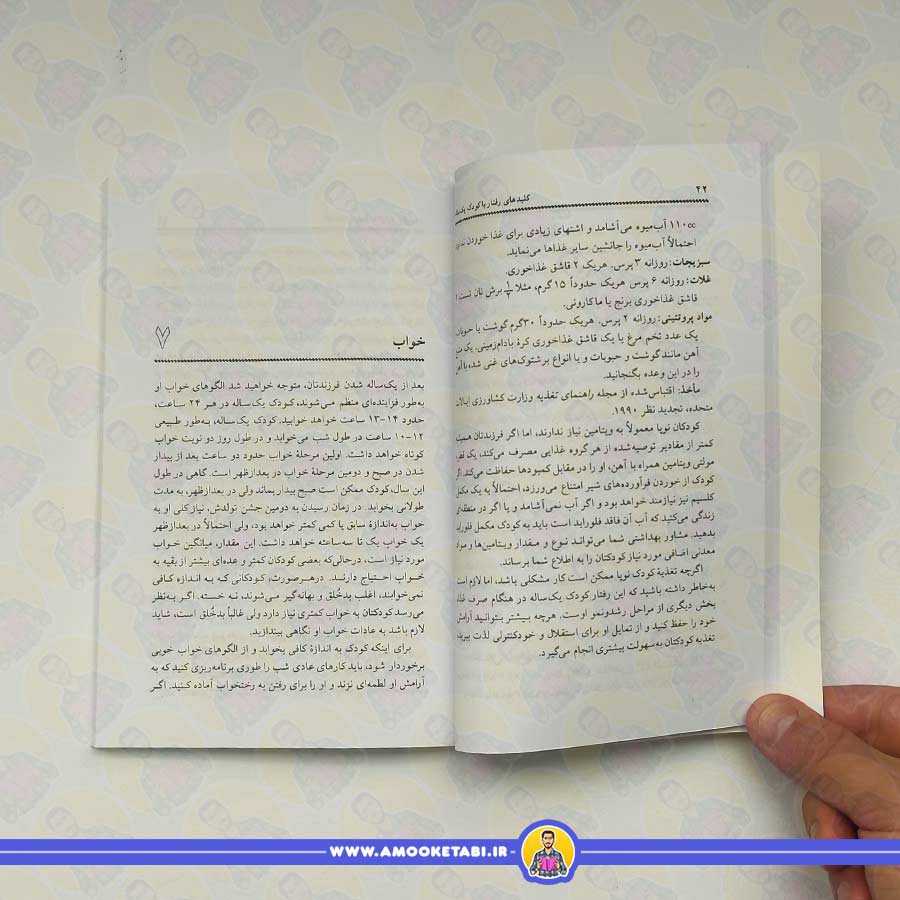 ۴۲
کلیدهای رفتار با کودک یک‌ساله
۱۱۰cc آب‌میوه می‌آشامد و اشتهای زیادی برای غذا خوردن ندارد
احتمالاً آب‌میوه را جانشین سایر غذاها می‌نماید.
سبزیجات: روزانه ۳ پرس. هریک ۲ قاشق غذاخوری.
غلات: روزانه ۶ پرس هریک حدوداً ۱۵ گرم، مثلا ۱/۲ برش نان تست
قاشق غذاخوری برنج یا ماکارونی.
مواد پروتئینی: روزانه ۲ پرس. هریک حدوداً ۳۰ گرم گوشت یا حبوبات
یک عدد تخم مرغ یا یک قاشق غذاخوری کرهٔ بادام‌زمینی. یک
آهن مانند گوشت و حبوبات و یا انواع برشتوک‌های غنی شده با آهن
را در این وعده بگنجانید.
مأخذ: اقتباس شده از مجله راهنمای تغذیه وزارت کشاورزی ایالات
متحده، تجدید نظر ۱۹۹۰.
کودکان نوپا معمولاً به ویتامین نیاز ندارند، اما اگر فرزندتان همیشه
کمتر از مقادیر توصیه‌شده از هر گروه غذایی مصرف می‌کند، یک
مولتی ویتامین همراه با آهن، او را در مقابل کمبودها حفاظت می‌کند. اگر
کودک از خوردن فرآورده‌های شیر امتناع می‌ورزد، احتمالاً به یک مکمل
کلسیم نیز نیازمند خواهد بود و اگر آب نمی‌آشامد و یا اگر در منطقه‌ای
زندگی می‌کنید که آب آن فاقد فلوراید است باید به کودک مکمل فلوراید
بدهید. مشاور بهداشتی شما می‌تواند نوع و مقدار ویتامین‌ها و مواد
معدنی اضافی مورد نیاز کودکتان را به اطلاع شما برساند.
اگرچه تغذیهٔ کودک نوپا ممکن است کار مشکلی باشد، اما لازم است
به‌خاطر داشته باشید که این رفتار کودک یک‌ساله در هنگام صرف غذا،
بخش دیگری از مراحل رشدونمو اوست. هرچه بیشتر بتوانید آرامش
خود را حفظ کنید و از تمایل او برای استقلال و خودکنترلی لذت ببرید،
تغذیه کودکتان به سهولت بیشتری انجام می‌گیرد.
۷
خواب
بعد از یک‌ساله شدن فرزندتان، متوجه خواهید شد الگوهای خواب او
به‌طور فزاینده‌ای منظم می‌شوند، کودک یک‌ساله در هر ۲۴ ساعت،
حدود ۱۴-۱۳ ساعت خواهد خوابید. کودک یک‌ساله، به‌طور طبیعی
۱۲-۱۰ ساعت در طول شب می‌خوابد و در طول روز دو نوبت خواب
کوتاه خواهد داشت. اولین مرحلهٔ خواب حدود دو ساعت بعد از بیدار
شدن در صبح و دومین مرحلهٔ خواب در بعدازظهر است. گاهی در طول
این سال، کودک ممکن است صبح بیدار بماند ولی در بعدازظهر، به مدت
طولانی بخوابد. در زمان رسیدن به دومین جشن تولدش، نیاز کلی او به
خواب به‌اندازهٔ سابق یا کمی کمتر خواهد بود، ولی احتمالاً در بعدازظهر
یک خواب یک تا سه‌ساعته خواهد داشت. این مقدار، میانگین خواب
مورد نیاز است، درحالی‌که بعضی کودکان کمتر و عده‌ای بیشتر از بقیه به
خواب احتیاج دارند. درهرصورت، کودکانی که به اندازه کافی
نمی‌خوابند، اغلب بدخُلق و بهانه‌گیر می‌شوند، نه خسته. اگر به‌نظر
می‌رسد کودکتان به خواب کمتری نیاز دارد ولی غالباً بدخُلق است، شاید
لازم باشد به عادات خواب او نگاهی بیندازید.
برای اینکه کودک به اندازهٔ کافی بخوابد و از الگوهای خواب خوبی
برخوردار شود، باید کارهای عادی شب را طوری برنامه‌ریزی کنید که به
آرامش او لطمه‌ای نزند و او را برای رفتن به رختخواب آماده کنید. اگر
WWW.AMOOKETABI.IR